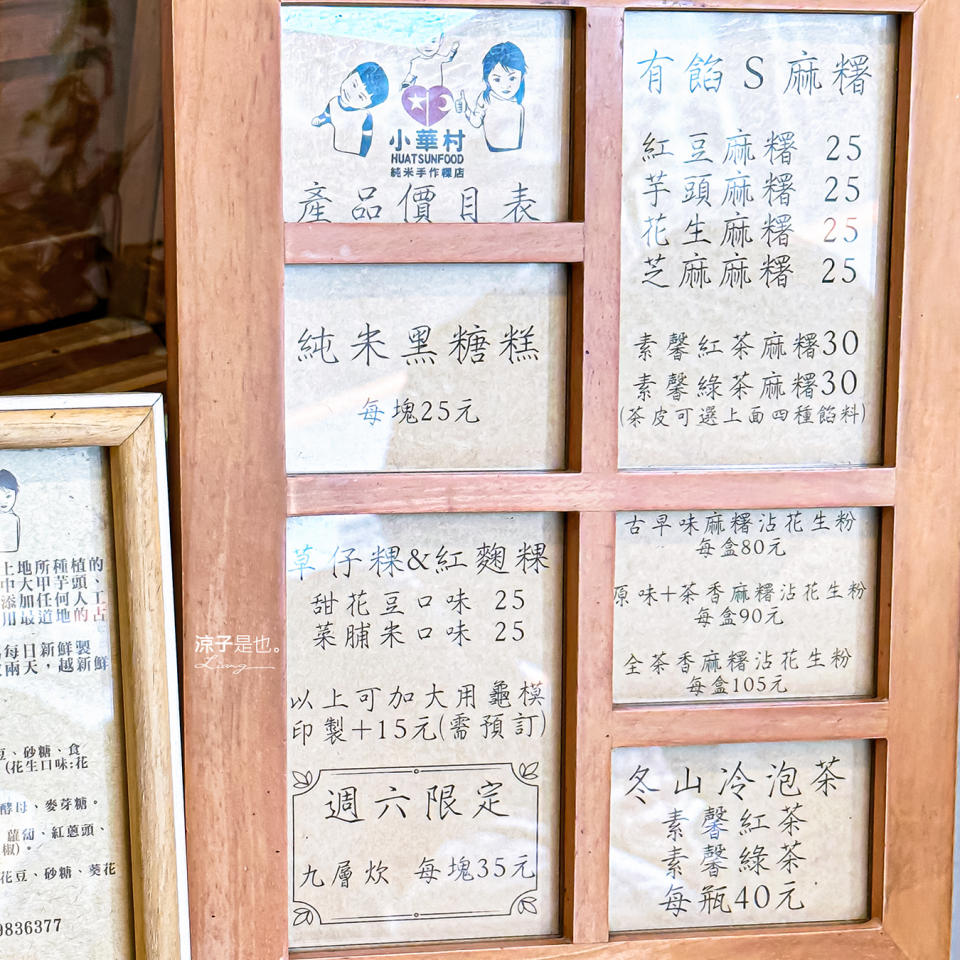 小華村
HUATSUNFOOD
純米手作粿店
產品價目表
純米黑糖糕
每塊25元
草仔粿&紅麴粿
甜花豆口味 25
菜脯米口味 25
以上可加大用龜模
印製+15元(需預訂)
週六限定
九層炊 每塊35元
有餡S麻糬
紅豆麻糬 25
芋頭麻糬 25
花生麻糬 25
芝麻麻糬 25
素馨紅茶麻糬30
素馨綠茶麻糬30
(茶皮可選上面四種餡料)
古早味麻糬沾花生粉
每盒80元
原味+茶香麻糬沾花生粉
每盒90元
全茶香麻糬沾花生粉
每盒105元
冬山冷泡茶
素馨紅茶
素馨綠茶
每瓶40元
上地所種植的
中大甲芋頭、
添加任何人工
用最道地的古
每日新鮮製
兩天,越新鮮
、砂糖、食
(花生口味:花
酵母、麥芽糖。
蘿蔔、紅蔥頭、
椒)。
花豆、砂糖、葵花
9836377
涼子是也。
Liang